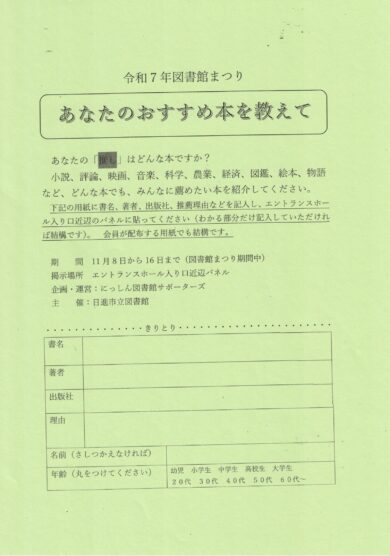 令和7年図書館まつり
あなたのおすすめ本を教えて
あなたの「推し」はどんな本ですか？
小説、評論、映画、音楽、科学、農業、経済、図鑑、絵本、物語
など、どんな本でも、みんなに薦めたい本を紹介してください。
下記の用紙に書名、著者、出版社、推薦理由などを記入し、エントランスホー
ル入り口近辺のパネルに貼ってください（わかる部分だけ記入していただけれ
ば結構です）。 会員が配布する用紙でも結構です。
期 間 11月8日から16日まで（図書館まつり期間中）
掲示場所 エントランスホール入り口近辺パネル
企画・運営：にっしん図書館サポーターズ
主 催：日進市立図書館
・・・・・・・・・・・・・・きりとり・・・・・・・・・・・・・・・・・・・・・
書名
著者
出版社
理由
名前（さしつかえなければ）
年齢（丸をつけてください） 幼児 小学生 中学生 高校生 大学生
20代 30代 40代 50代 60代～